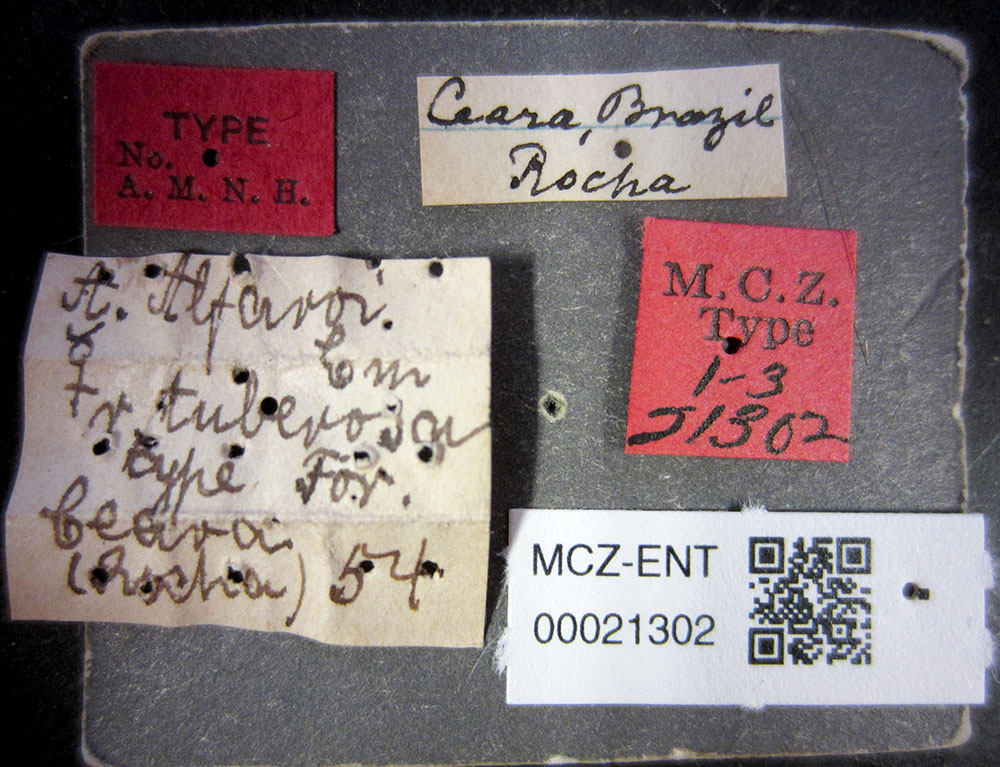 TYPE
No.
A. M. N. H.
Ceara, Brazil
Rocha
A. Alfaroi.
☿ Em
r. tuberosa
Type For.
Ceara
(Rocha) 54
M. C. Z.
Type
1-3
21302
MCZ-ENT
00021302